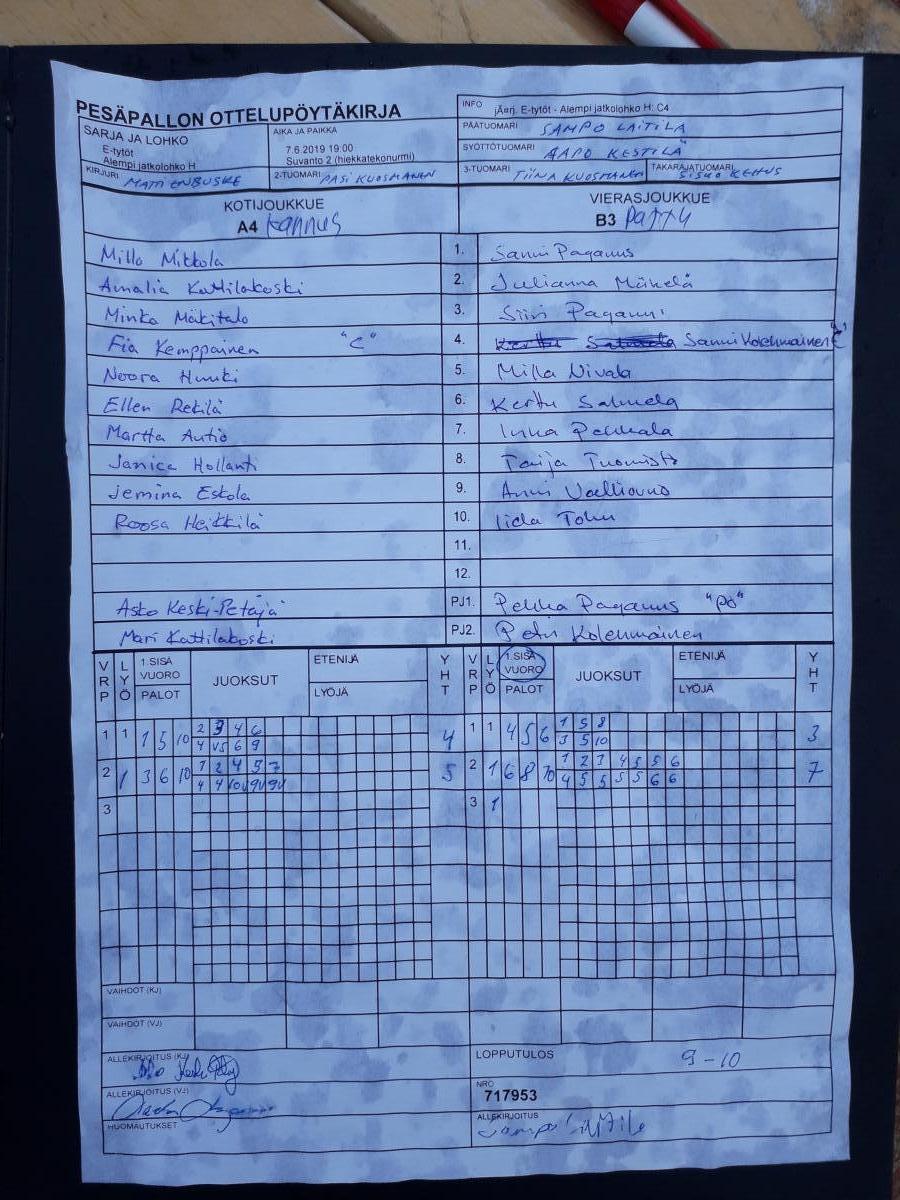 PESÄPALLON OTTELUPÖYTÄKIRJA
INFO jÄarj. E-tytöt - Alempi jatkolohko H: C4
SARJA JA LOHKO
E-tytöt
Alempi jatkolohko H
AIKA JA PAIKKA
7.6.2019 19.00
Suvanto 2 (hiekkatekonurmi)
PÄÄTUOMARI SAMPO LAITILA
SYÖTTÖTUOMARI AAPO KESTILÄ
KIRJURI MATTI ENBUSKE
2-TUOMARI PASI KUOSMANEN
3-TUOMARI TIINA KUOSMANEN
TAKARAJATUOMARI SISKO KEHUS
KOTIJOUKKUE
A4 Kannus
VIERASJOUKKUE
B3 Pattu
Milla Mikkola 1. Sanni Paganus
Amalia Kattilakoski 2. Julianna Mäkelä
Minka Mäkitalo 3. Siiri Paganus
Fia Kemppainen "C" 4. Sanni Kolehmainen "C"
Noora Huuki 5. Milla Nivala
Ellen Rekilä 6. Kerttu Salmela
Martta Autio 7. Inka Pekkala
Janica Hollanti 8. Taija Tuomisto
Jemina Eskola 9. Anni
Roosa Heikkilä 10. Iida
11.
12.
Asko Keski-Petäjä PJ1. Pekka Paganus "PÖ"
Mari Kattilakoski PJ2. Petri Kolehmainen
VRP LYÖ 1.SISÄ VUORO PALOT JUOKSUT ETENIJÄ LYÖJÄ YHT VRP LYÖ 1.SISÄ VUORO PALOT JUOKSUT ETENIJÄ LYÖJÄ YHT
1 1 1 5 10 2 3 4 6 4 1 1 4 5 6 1 5 8 3
4 V5 6 9 3 5 10
2 1 3 6 10 1 2 4 5 7 5 2 1 6 8 10 1 2 1 4 5 5 6 7
4 4 10V 9V 9V 4 5 5 5 5 6 6
3 3 1
VAIHDOT (KJ)
VAIHDOT (VJ)
ALLEKIRJOITUS (KJ)
LOPPUTULOS 9-10
ALLEKIRJOITUS (VJ)
NRO
717953
HUOMAUTUKSET
ALLEKIRJOITUS Sampo Laitila